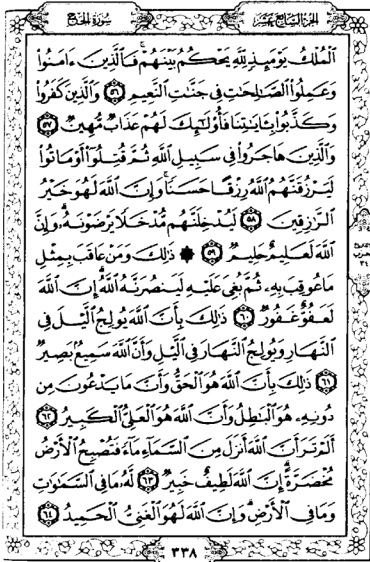 سُورَةُ الحَجِّ
الجُزءُ السَّابِعَ عَشَرَ
ٱلْمُلْكُ يَوْمَئِذٍ لِّلَّهِ يَحْكُمُ بَيْنَهُمْ ۚ فَٱلَّذِينَ ءَامَنُوا۟
وَعَمِلُوا۟ ٱلصَّـٰلِحَـٰتِ فِى جَنَّـٰتِ ٱلنَّعِيمِ ٥٦ وَٱلَّذِينَ كَفَرُوا۟
وَكَذَّبُوا۟ بِـَٔايَـٰتِنَا فَأُو۟لَـٰٓئِكَ لَهُمْ عَذَابٌ مُّهِينٌ ٥٧
وَٱلَّذِينَ هَاجَرُوا۟ فِى سَبِيلِ ٱللَّهِ ثُمَّ قُتِلُوٓا۟ أَوْ مَاتُوا۟
لَيَرْزُقَنَّهُمُ ٱللَّهُ رِزْقًا حَسَنًا ۚ وَإِنَّ ٱللَّهَ لَهُوَ خَيْرُ
ٱلرَّٰزِقِينَ ٥٨ لَيُدْخِلَنَّهُم مُّدْخَلًا يَرْضَوْنَهُۥ ۗ وَإِنَّ
ٱللَّهَ لَعَلِيمٌ حَلِيمٌ ٥٩ ۞ ذَٰلِكَ وَمَنْ عَاقَبَ بِمِثْلِ
مَا عُوقِبَ بِهِۦ ثُمَّ بُغِىَ عَلَيْهِ لَيَنصُرَنَّهُ ٱللَّهُ ۗ إِنَّ ٱللَّهَ
لَعَفُوٌّ غَفُورٌ ٦٠ ذَٰلِكَ بِأَنَّ ٱللَّهَ يُولِجُ ٱلَّيْلَ فِى
ٱلنَّهَارِ وَيُولِجُ ٱلنَّهَارَ فِى ٱلَّيْلِ وَأَنَّ ٱللَّهَ سَمِيعٌۢ بَصِيرٌ
٦١ ذَٰلِكَ بِأَنَّ ٱللَّهَ هُوَ ٱلْحَقُّ وَأَنَّ مَا يَدْعُونَ مِن
دُونِهِۦ هُوَ ٱلْبَـٰطِلُ وَأَنَّ ٱللَّهَ هُوَ ٱلْعَلِىُّ ٱلْكَبِيرُ ٦٢
أَلَمْ تَرَ أَنَّ ٱللَّهَ أَنزَلَ مِنَ ٱلسَّمَآءِ مَآءً فَتُصْبِحُ ٱلْأَرْضُ
مُخْضَرَّةً ۗ إِنَّ ٱللَّهَ لَطِيفٌ خَبِيرٌ ٦٣ لَّهُۥ مَا فِى ٱلسَّمَـٰوَٰتِ
وَمَا فِى ٱلْأَرْضِ ۗ وَإِنَّ ٱللَّهَ لَهُوَ ٱلْغَنِىُّ ٱلْحَمِيدُ ٦٤
٣٣٨